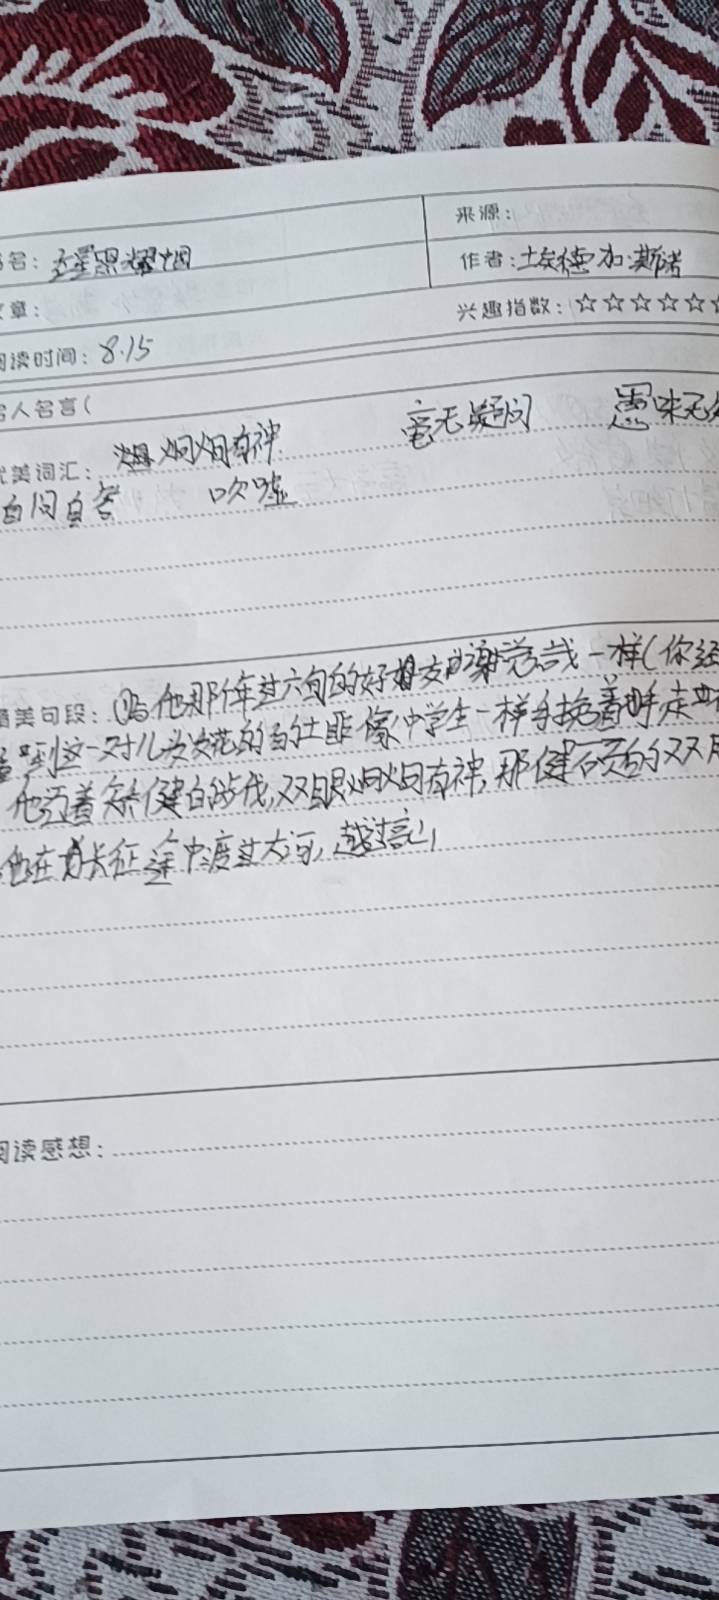 来源:
书名: 红星照耀中国
作者: 埃德加·斯诺
章:
兴趣指数: ☆☆☆☆☆☆
阅读时间: 8.15
名人名言(
优美词汇: 炯炯有神 毫无疑问 愚昧无
自问自答 吹嘘
精美句段: ①与他那年过六旬的好朋友谢觉哉一样(你经
看到这一对儿头发花白的 像中学生一样手挽着手走
他迈着矫健的步伐,双眼炯炯有神,那健硕的双
他在长征途中渡过大河,越过高山
阅读感想: